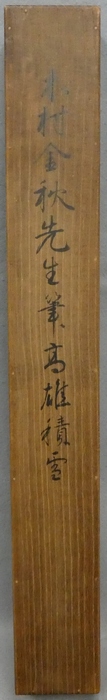 木村金秋先生筆高雄積雪